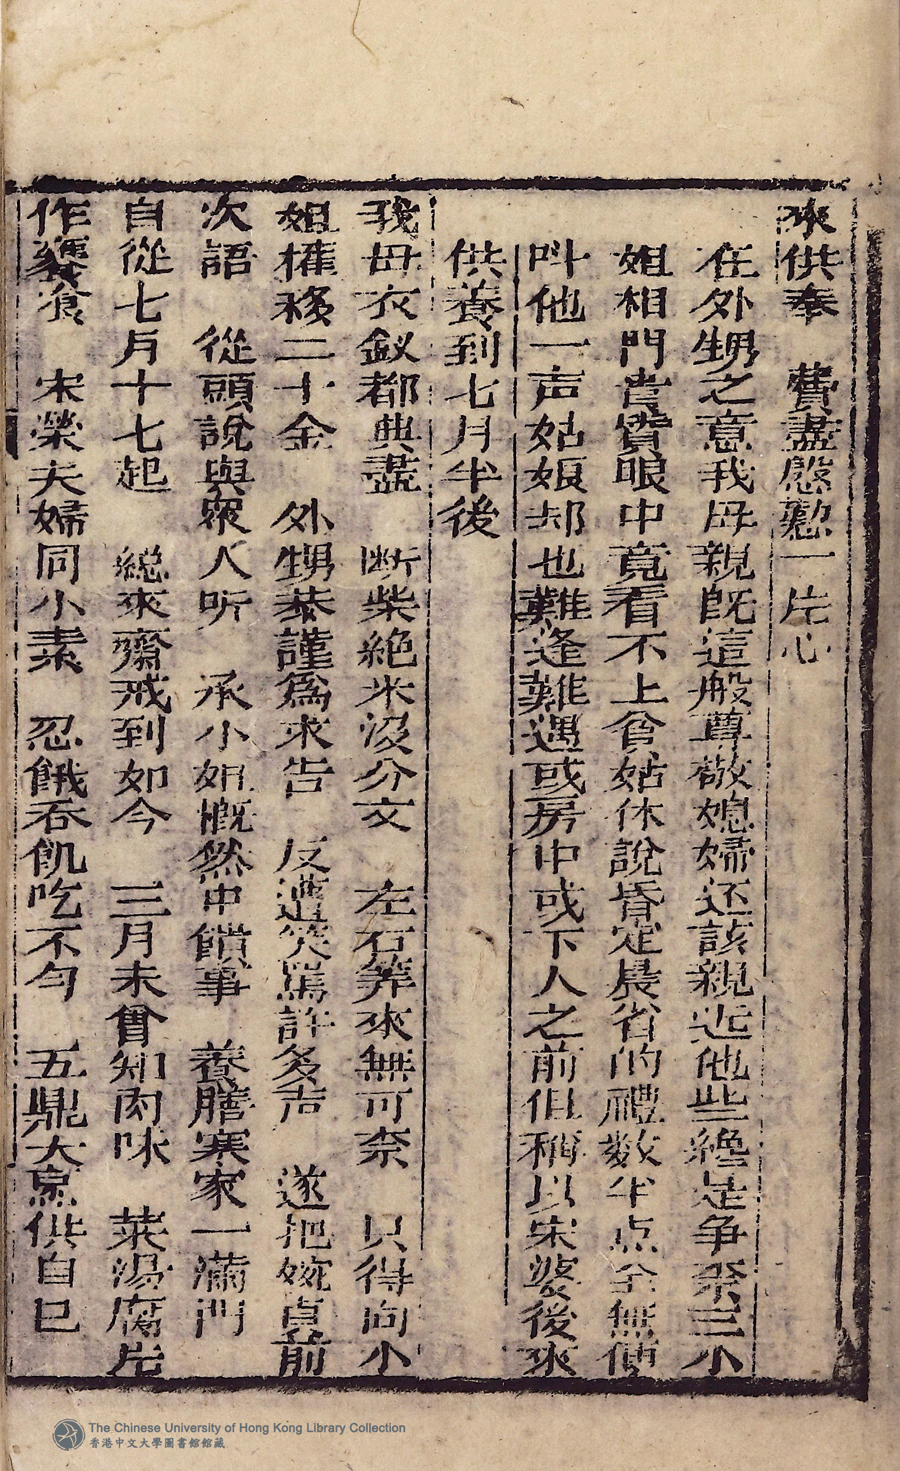 來供奉　費盡慇懃一片心
在外甥之意我母親既這般尊敬媳婦还該親近他些纔是争奈三小
姐相門貴質眼中竟看不上貧姑休說昏定晨省的禮数半点全無便
呌他一声姑娘却也難逢難遇或房中或下人之前但稱以宋婆後來
供養到七月半後
我母衣釵都典盡　断柴絶米没分文　左右筭來無可奈　只得向小
姐權移二十金　外甥恭謹爲求告　反遭笑罵許多声　遂把婉貞前
次語　從頭說與衆人听　承小姐慨然中饋事　養膳寒家一滿門
自從七月十七起　總來齋戒到如今　三月未曾知肉味　菜湯腐片
作饔飱　宋榮夫婦同小素　忍餓吞飢吃不勻　五鼎大烹供自已
The Chinese University of Hong Kong Library Collection
香港中文大學圖書館館藏